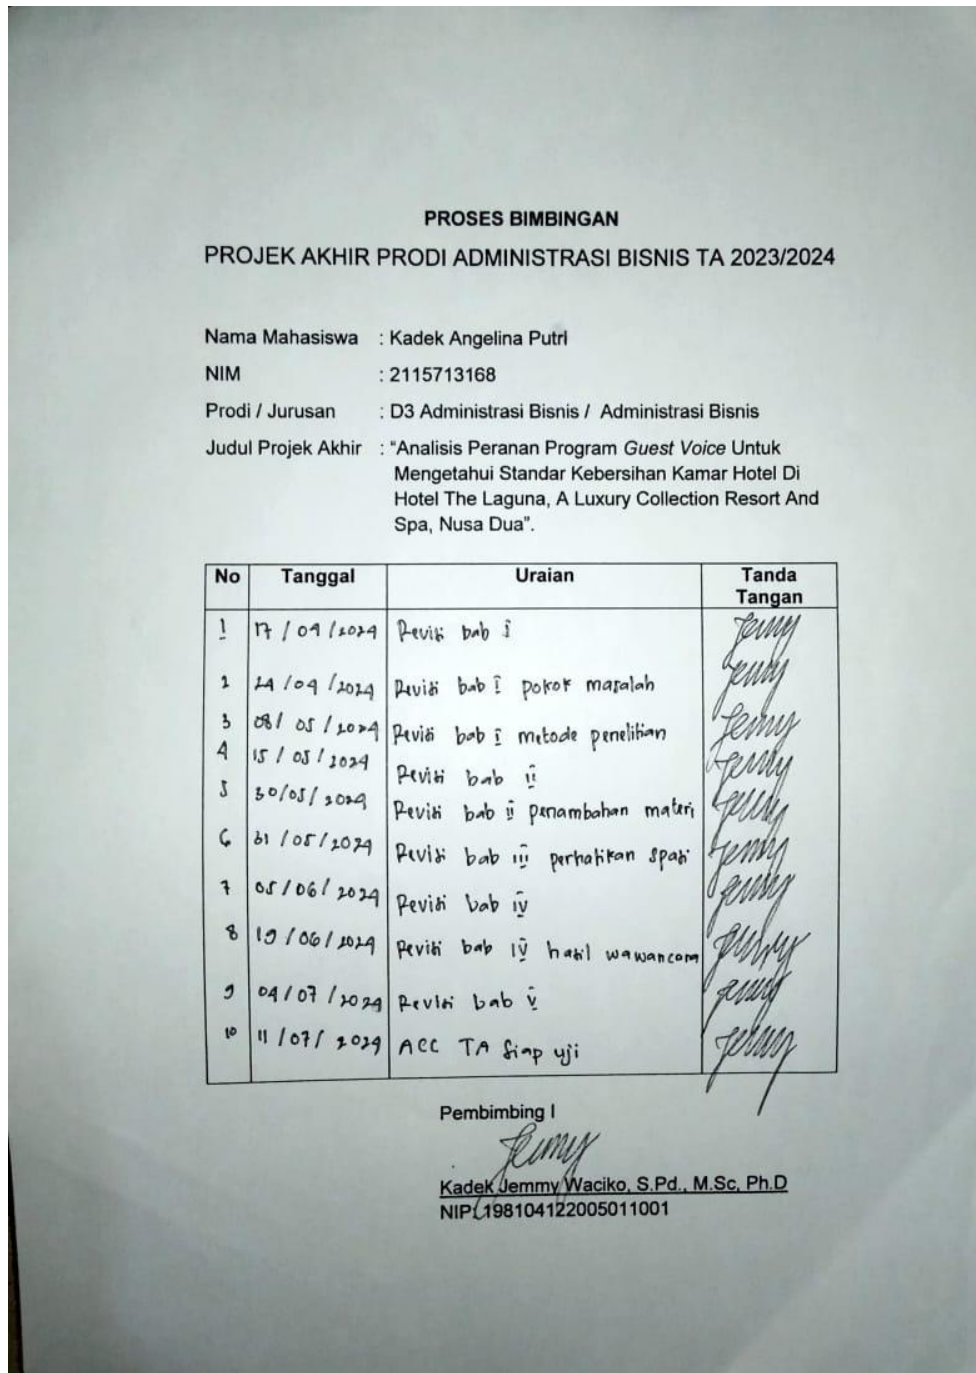 PROSES BIMBINGAN
PROJEK AKHIR PRODI ADMINISTRASI BISNIS TA 2023/2024
Nama Mahasiswa : Kadek Angelina Putri
NIM : 2115713168
Prodi / Jurusan : D3 Administrasi Bisnis / Administrasi Bisnis
Judul Projek Akhir : "Analisis Peranan Program Guest Voice Untuk
Mengetahui Standar Kebersihan Kamar Hotel Di
Hotel The Laguna, A Luxury Collection Resort And
Spa, Nusa Dua".
No Tanggal Uraian Tanda
Tangan
1 17/04/2024 Revisi bab I Jemmy
2 24/04/2024 Revisi bab I pokok masalah Jemmy
3 08/05/2024 Revisi bab I metode penelitian Jemmy
4 15/05/2024 Revisi bab II Jemmy
5 30/05/2024 Revisi bab II penambahan materi Jemmy
6 31/05/2024 Revisi bab III perhatikan spasi Jemmy
7 05/06/2024 Revisi bab IV Jemmy
8 19/06/2024 Revisi bab IV hasil wawancara Jemmy
9 04/07/2024 Revisi bab V Jemmy
10 11/07/2024 ACC TA siap uji Jemmy
Pembimbing I
Jemmy
Kadek Jemmy Waciko, S.Pd., M.Sc, Ph.D
NIP. 198104122005011001